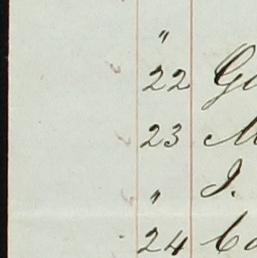 "
22 G
23 M
" J.
24 Co